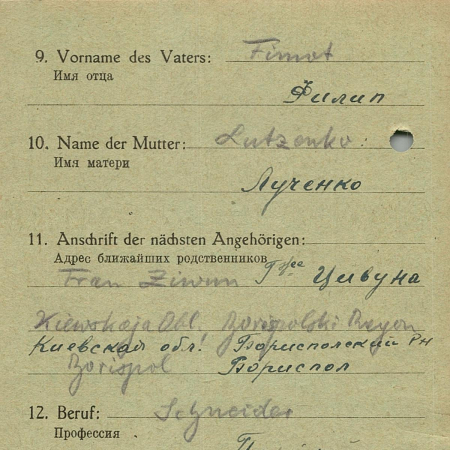 9. Vorname des Vaters: Fimot
Имя отца
Филип
10. Name der Mutter: Lutzenko
Имя матери
Лученко
11. Anschrift der nächsten Angehörigen:
Адрес ближайших родственников
Frau Ziwun Г-жа Цивуна
Kiewskaja Obl. Borispolski Rayon
Киевская обл. Бориспольский Рн
Borispol Бориспол
12. Beruf: Schneider
Профессия